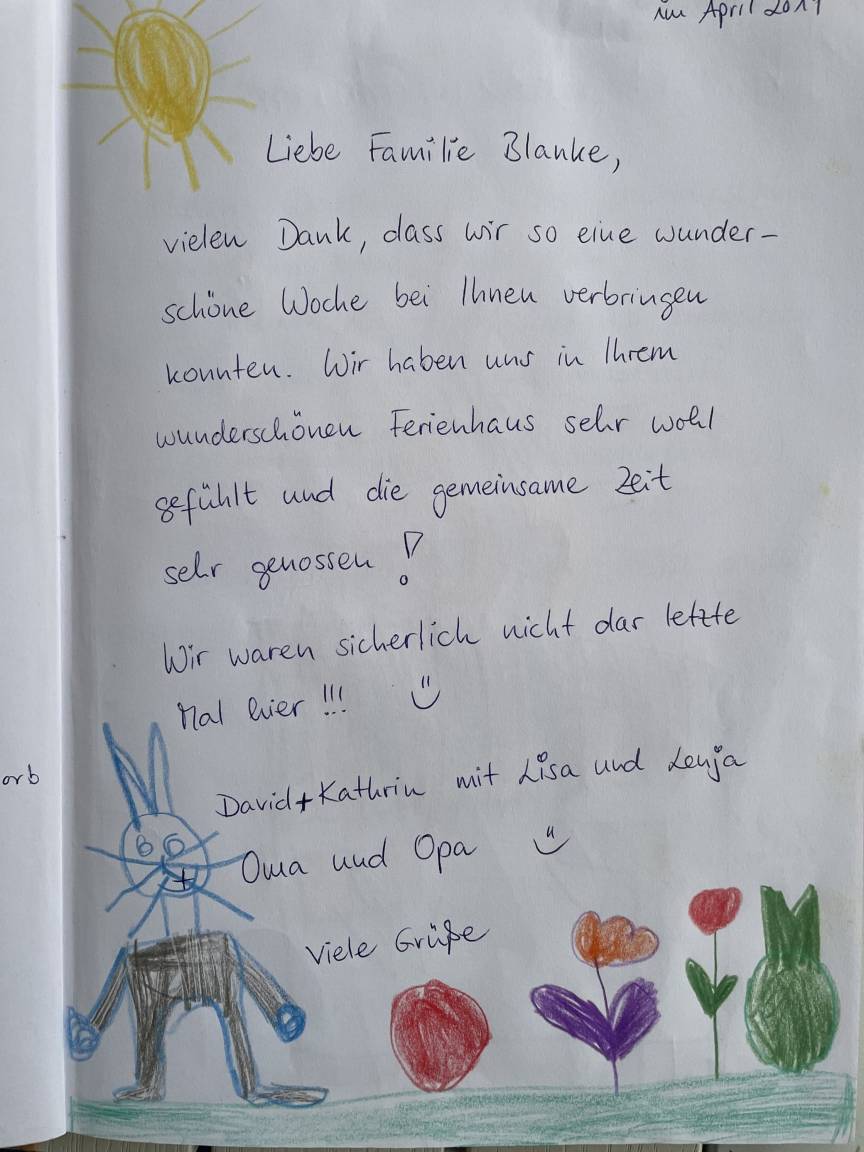 im April 2019
Liebe Familie Blanke,
vielen Dank, dass wir so eine wunder-
schöne Woche bei Ihnen verbringen
konnten. Wir haben uns in Ihrem
wunderschönen Ferienhaus sehr wohl
gefühlt und die gemeinsame Zeit
sehr genossen!
Wir waren sicherlich nicht dar letzte
Mal hier !!!
orb
David+Kathrin mit Lisa und Lenja
Oma und Opa
Viele Grüße